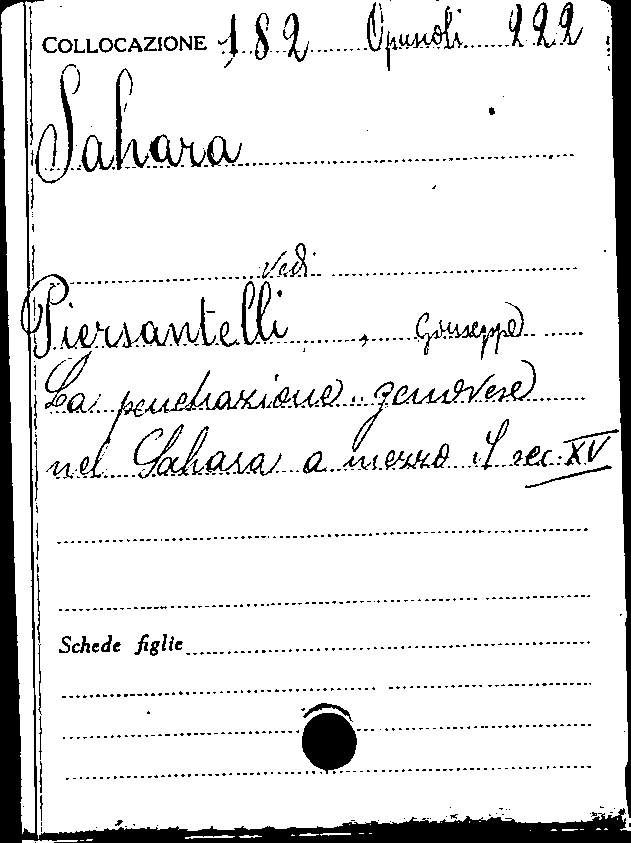 COLLOCAZIONE 182 Opuscoli 222
Sahara
Vedi
Piersantelli, Giuseppe
La penetrazione genovese
nel Sahara a mezzo il sec. XV
Schede figlie